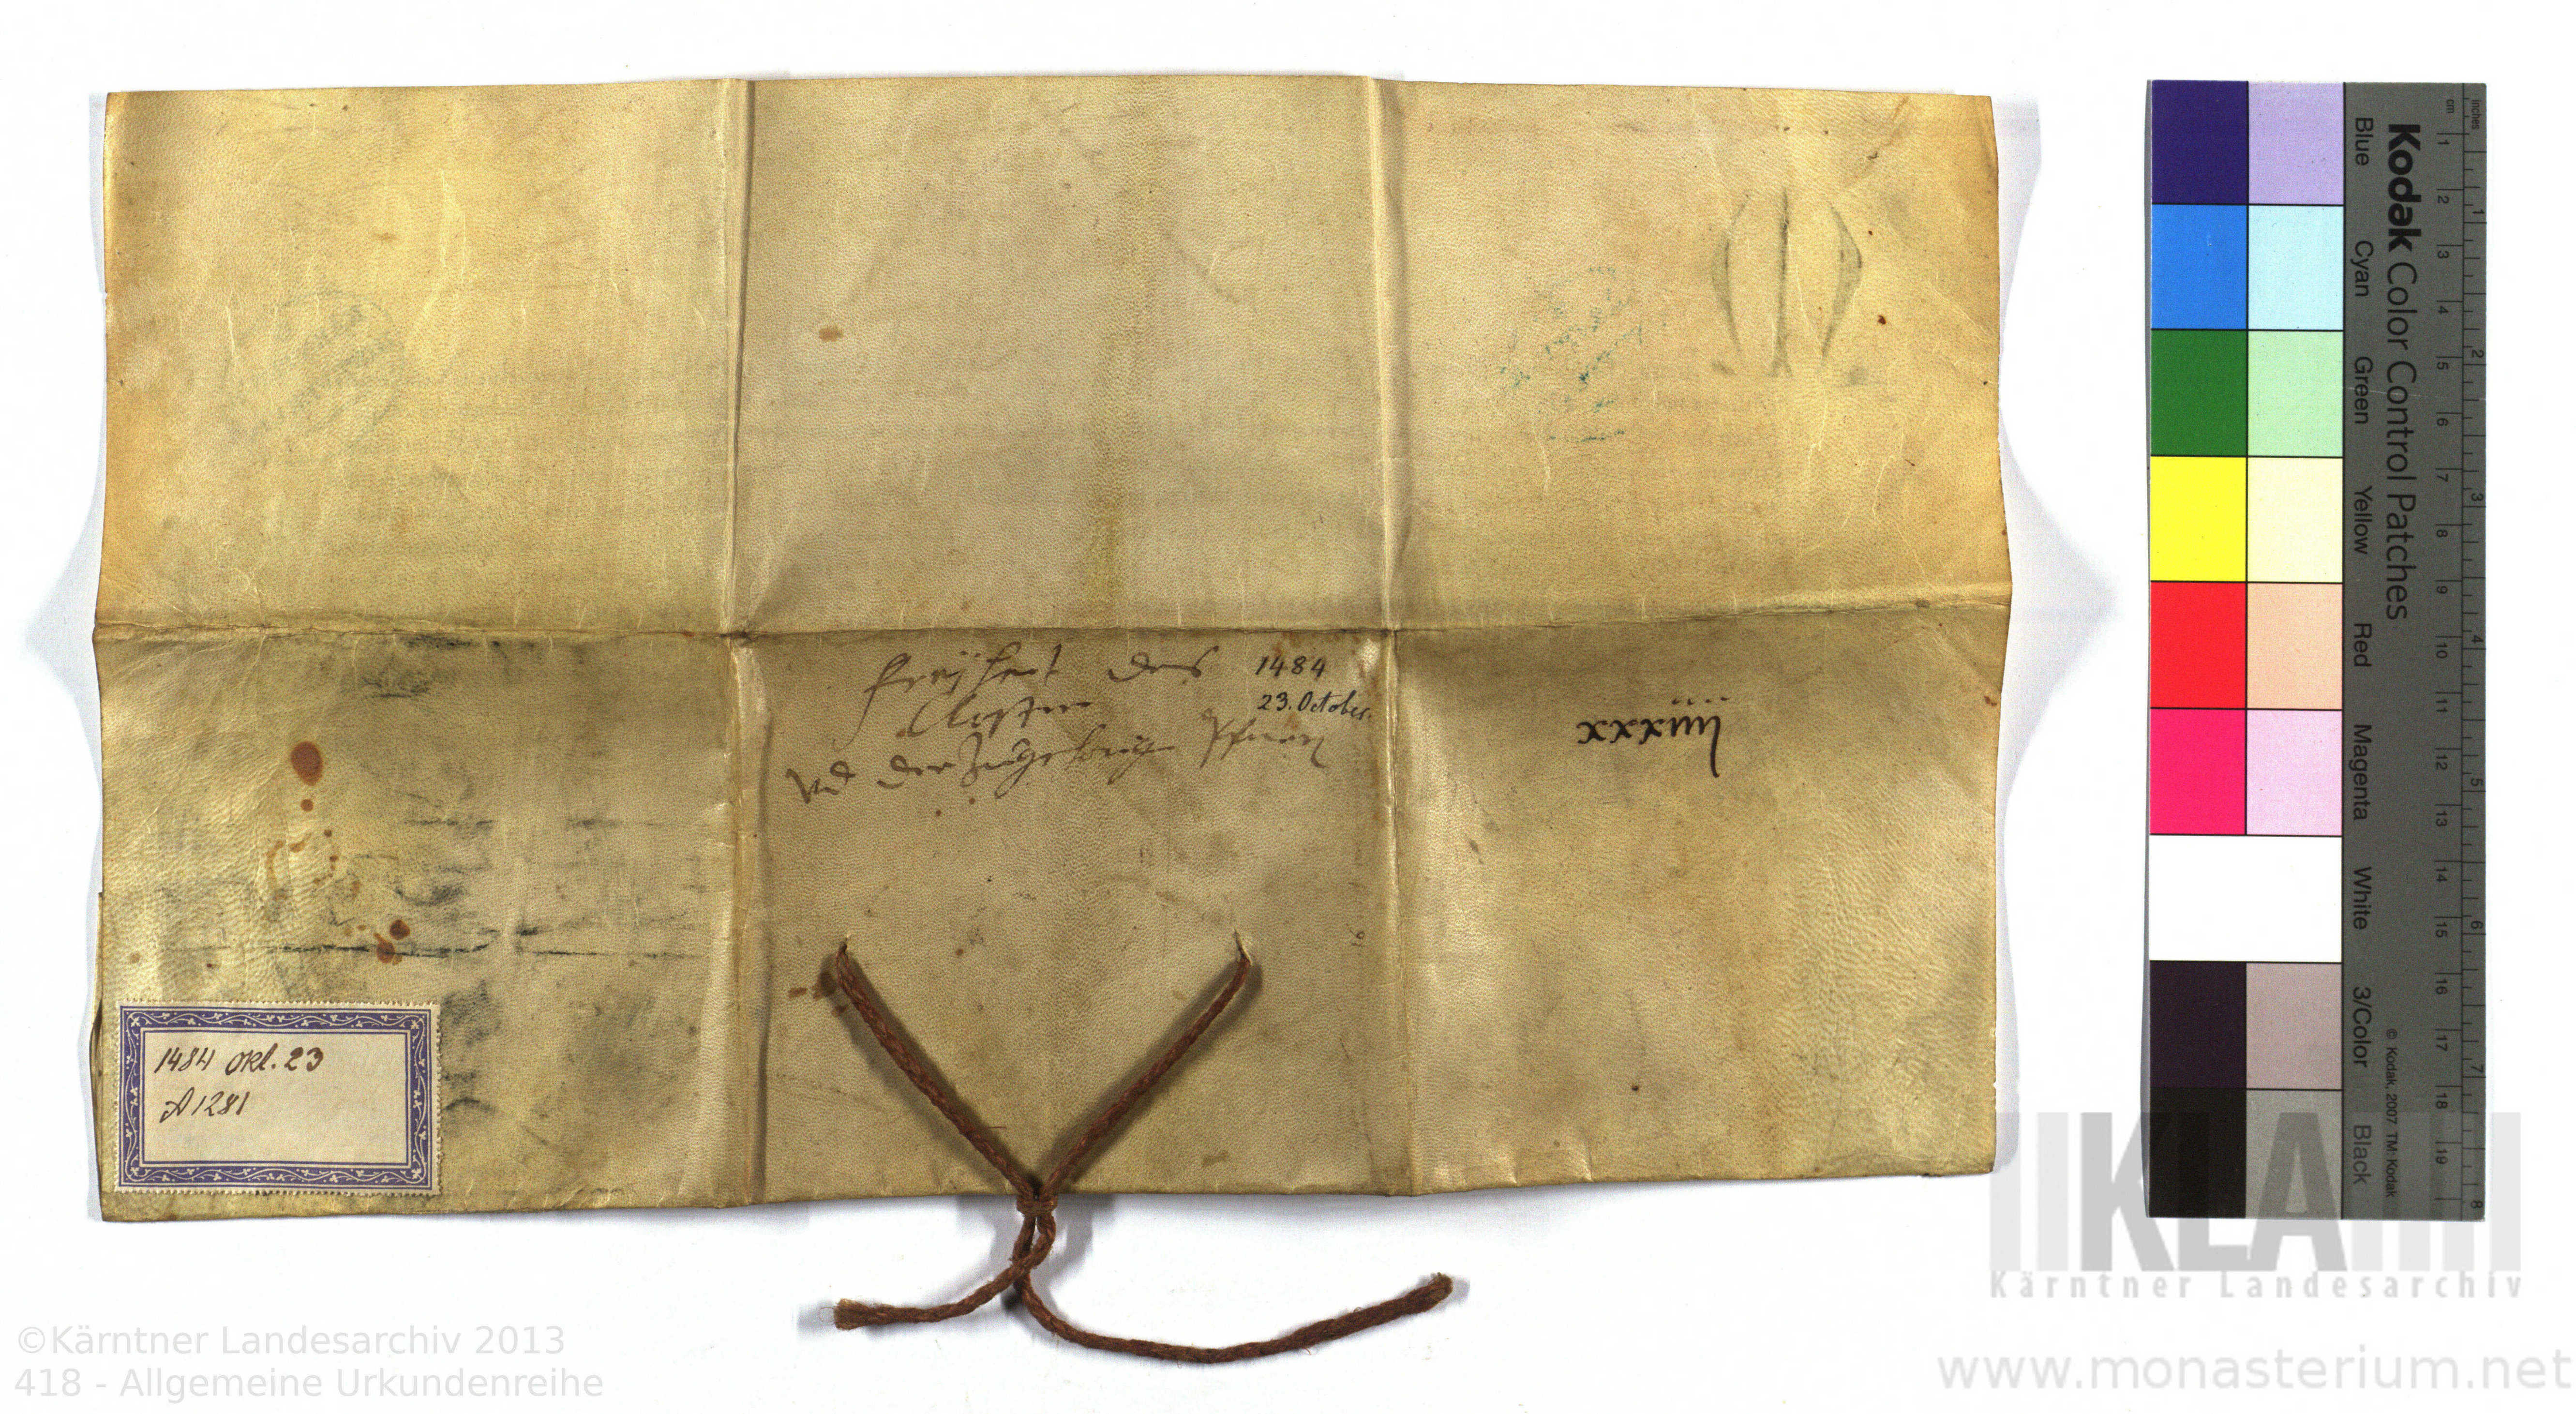 freÿheit des
Closters
vnd der Zugehörigen Pfarr
1484
23. October.
xxxxiiij
1484 Okt. 23
A 1281
Kodak Color Control Patches
Blue Cyan Green Yellow Red Magenta White 3/Color Black
© Kodak, 2007 TM: Kodak
inches 1 2 3 4 5 6 7 8
cm 1 2 3 4 5 6 7 8 9 10 11 12 13 14 15 16 17 18 19
KLA
Kärntner Landesarchiv
©Kärntner Landesarchiv 2013
418 - Allgemeine Urkundenreihe
www.monasterium.net